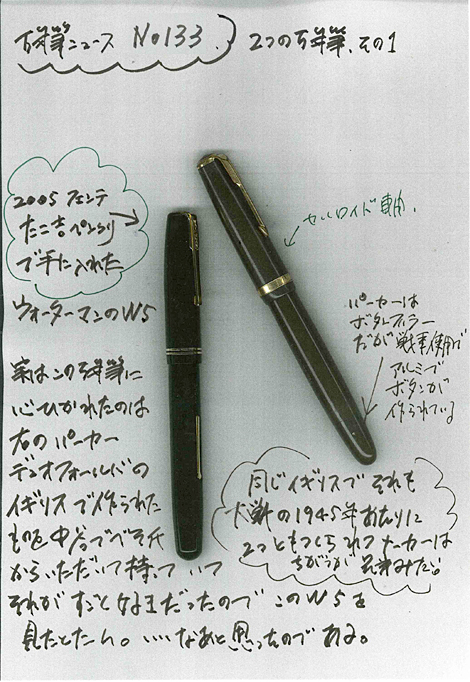 万年筆ニュース No133
2つの万年筆、その1
2005 フェンテ
たこ吉ペンクリ
で手に入れた
ウォーターマンのW5
セルロイド軸
パーカーは
ボタンフィラー
だが戦事使用で
アルミで
ボタンが
作られている
実はこの万年筆に
心ひかれたのは
右のパーカー
デュオフォールドの
イギリスで作られた
ものを中谷でべそ氏
からいただいて持っていて
それがすごく好きだったのでこのW5を
見たとたん。いいなあと思ったのである。
同じイギリスでそれも
大戦の1945年あたりに
2つともつくられメーカーは
ちがうが兄弟みたい。